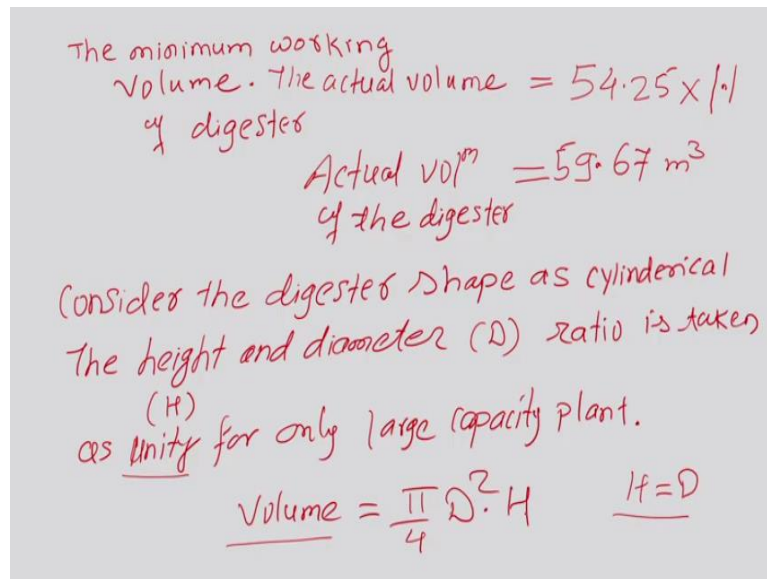 The minimum working
volume. The actual volume = 54.25 x 1.1
of digester
Actual volm = 59.67 m³
of the digester
Consider the digester shape as cylinderical
The height and diameter (D) ratio is taken
(H)
as unity for only large capacity plant.
Volume = π/4 D². H    H = D